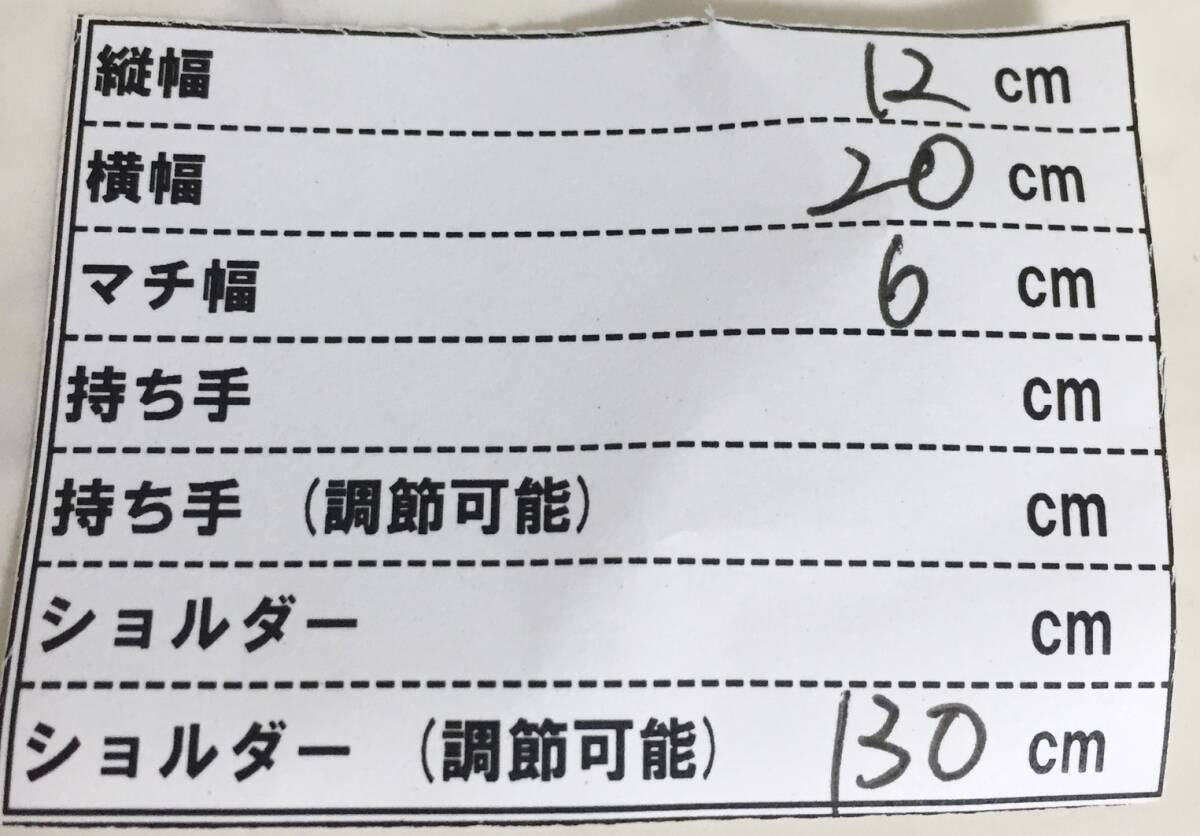 縦幅 12 cm
横幅 20 cm
マチ幅 6 cm
持ち手 cm
持ち手 (調節可能) cm
ショルダー cm
ショルダー (調節可能) 130 cm